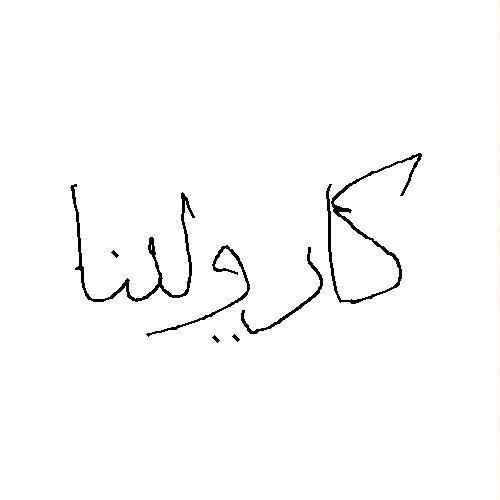 كارولينا